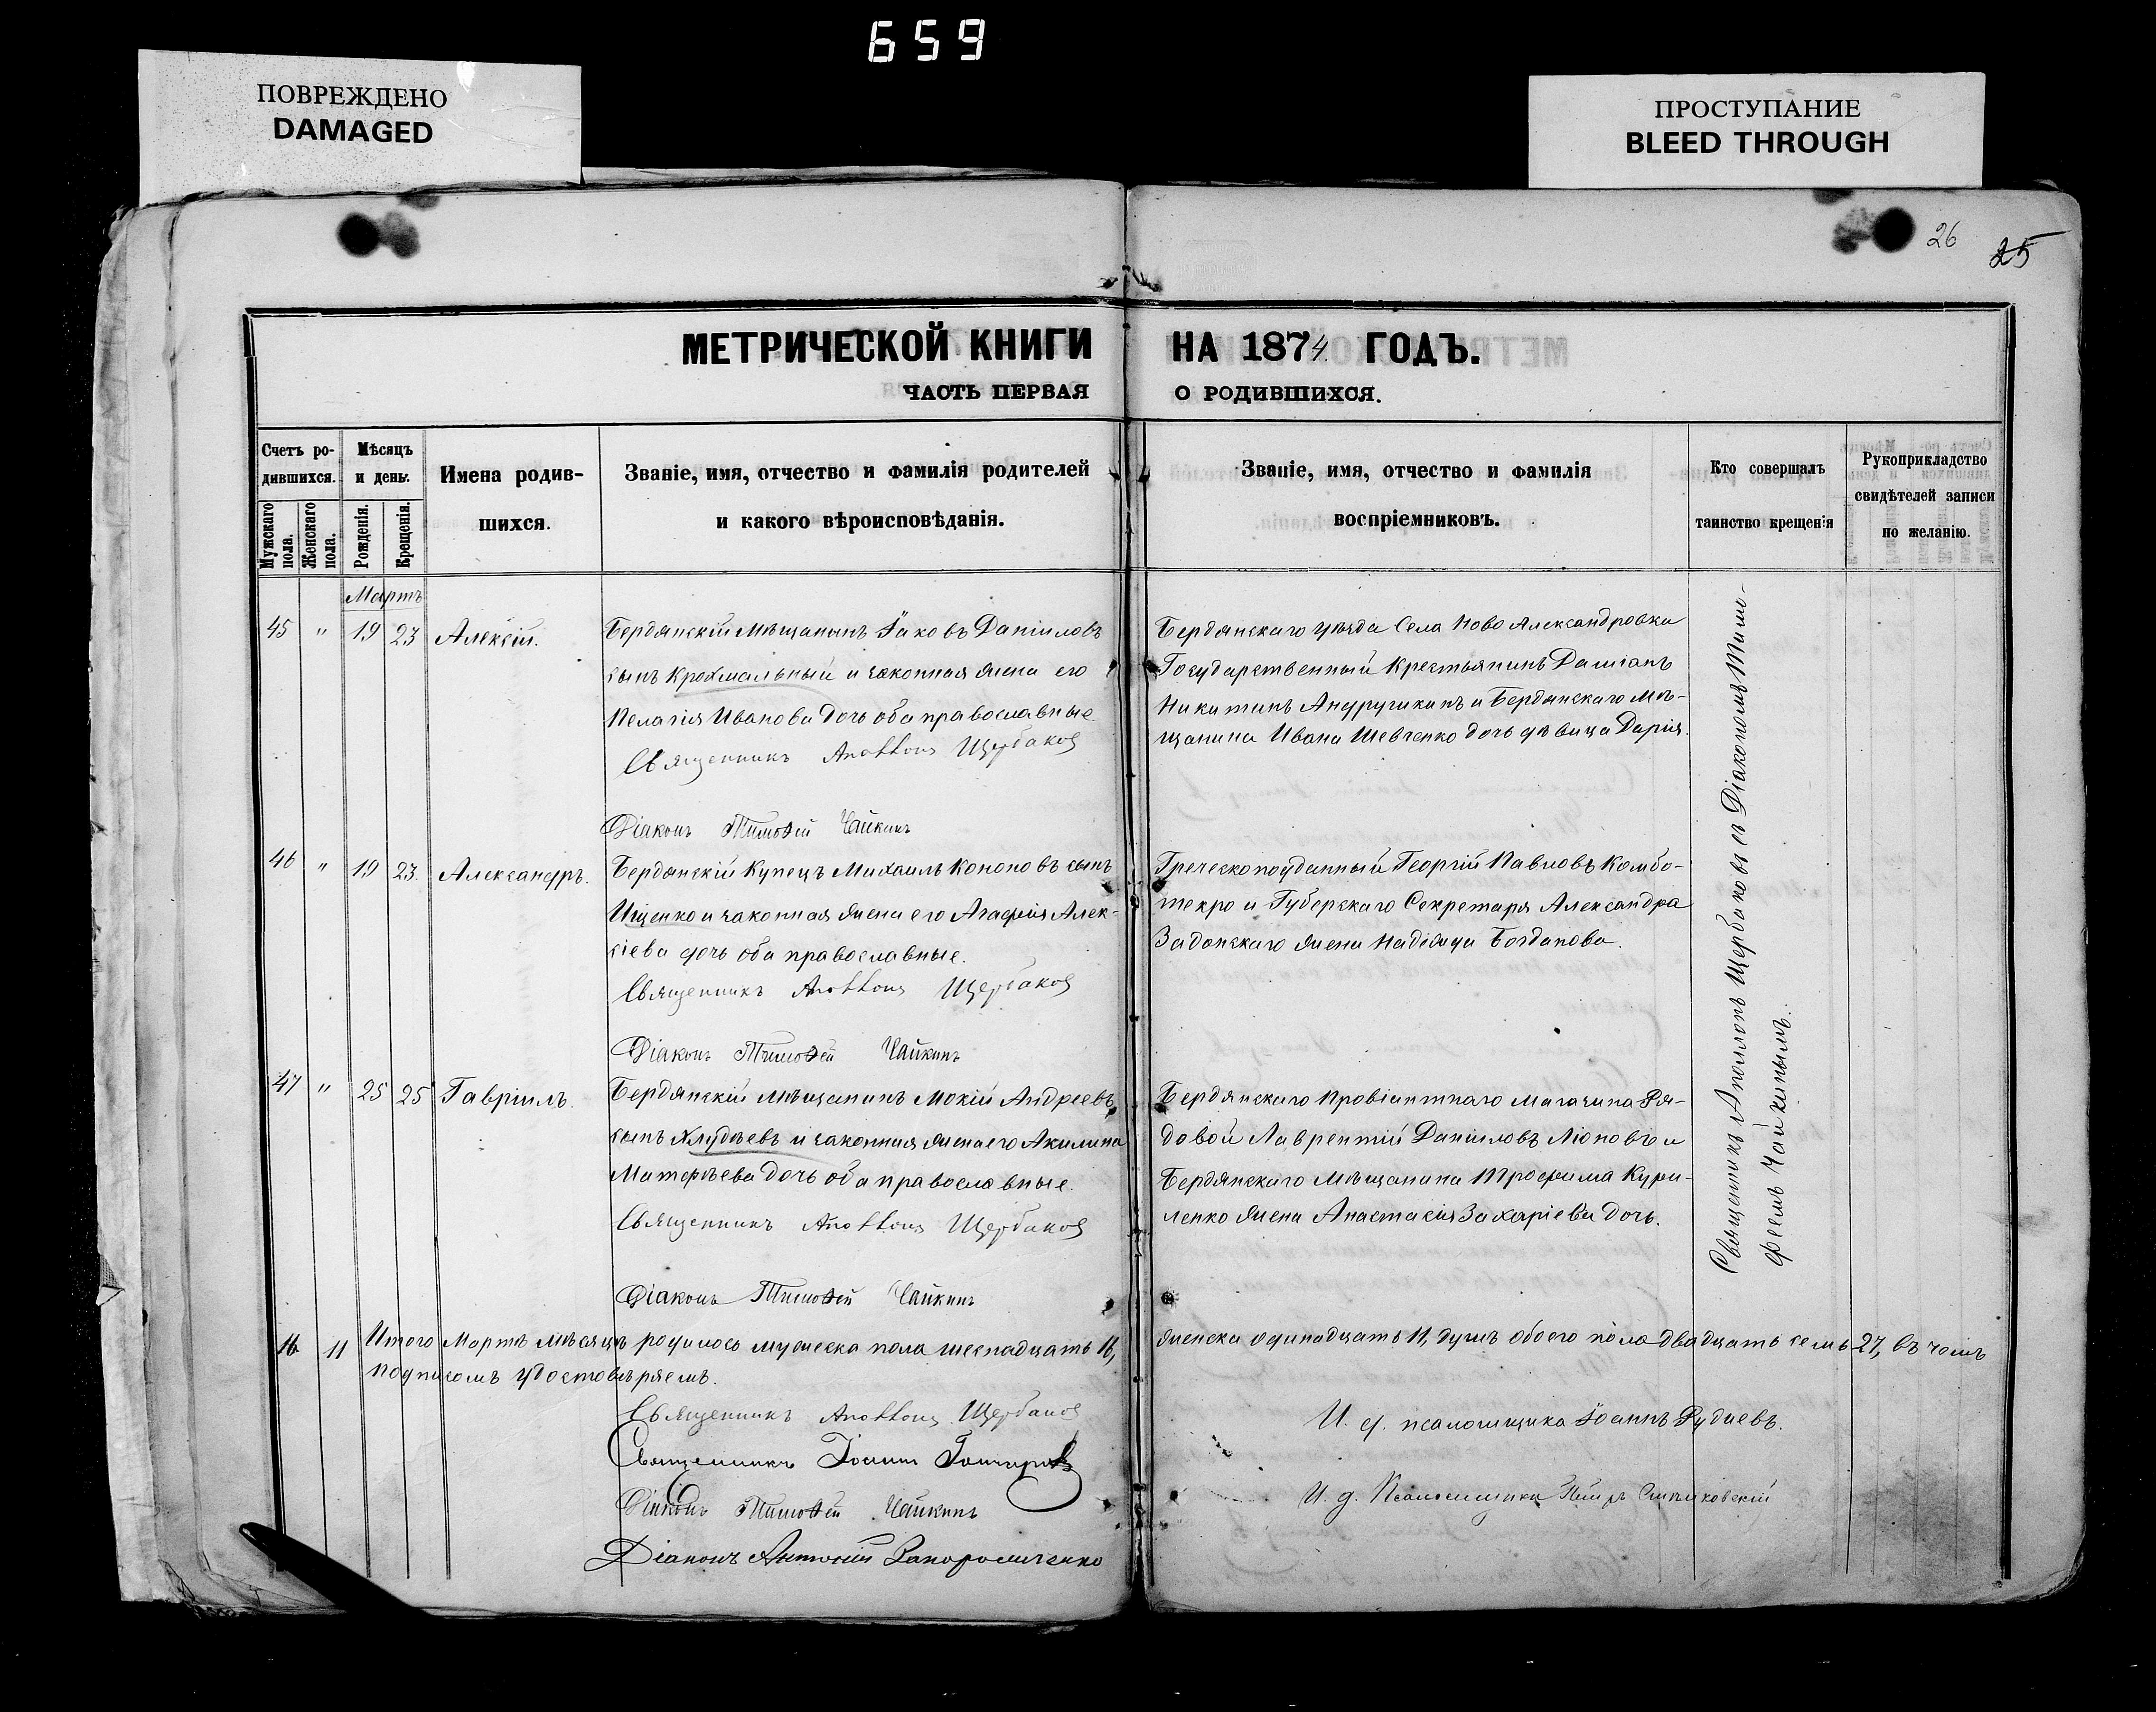 659
ПОВРЕЖДЕНО
DAMAGED
ПРОСТУПАНИЕ
BLEED THROUGH
26
25
МЕТРИЧЕСКОЙ КНИГИ НА 1874 ГОДЪ.
ЧАСТЬ ПЕРВАЯ О РОДИВШИХСЯ.
Счетъ ро-
дившихся.
Мужскаго пола.
Женскаго пола.
Мѣсяцъ
и день.
Рожденія.
Крещенія.
Имена родив-
шихся.
Званіе, имя, отчество и фамилія родителей
и какого вѣроисповѣданія.
Званіе, имя, отчество и фамилія
воспріемниковъ.
Кто совершалъ
таинство крещенія
Рукоприкладство
свидѣтелей записи
по желанію.
Мартъ
45 " 19 23 Алексій.
Бердянскій Мѣщанинъ Іаковъ Даніиловъ
сынъ Крохмальный и законная жена его
Пелагія Иванова дочь оба православные
Священникъ Аполлонъ Щербаковъ
Діаконъ Тимоѳей Чайкинъ
Бердянскаго уѣзда Села Ново Александровки
Государственный Крестьянинъ Даміанъ
Никитинъ и Бердянскаго Мѣ-
щанина Ивана Шевченко дочь дѣвица Дарія.
46 " 19 23. Александръ.
Бердянскій Купецъ Михаилъ Кононовъ сынъ
Ищенко и законная жена его Агафія Алек-
сіева дочь оба православные.
Священникъ Аполлонъ Щербаковъ
Діаконъ Тимоѳей Чайкинъ
Греческоподданный Георгій Павловъ Комбо-
текро и Губерскаго Секретаря Александра
Задонскаго жена Надежда Богданова.
47 " 25 25 Гавріилъ.
Бердянскій Мѣщанинъ Мокій Андреевъ
сынъ Хлудѣевъ и законная жена его Акилина
Матфѣева дочь оба православные.
Священникъ Аполлонъ Щербаковъ
Діаконъ Тимоѳей Чайкинъ
Бердянскаго Провіантнаго Магазина Ря-
довой Лаврентій Даніиловъ Ліоновъ и
Бердянскаго Мѣщанина Трофима Кури-
ленко жена Анастасія Захаріева дочь.
Священникъ Аполлонъ Щербаковъ съ Діакономъ Тимо-
феемъ Чайкинымъ.
16 11 Итого Мартъ мѣсяцъ родилось мужеска пола шеснадцать 16, женска одинадцать 11, душъ обоего пола двадцать семь 27, въ чомъ
подписомъ удостовѣряемъ.
Священникъ Аполлонъ Щербаковъ
Священникъ Іоаннъ Гончаровъ
Діаконъ Тимоѳей Чайкинъ
Діаконъ Антоній Запорожченко
И. д. псаломщика Іоаннъ Рудневъ.
И. д. Псаломщика Петръ